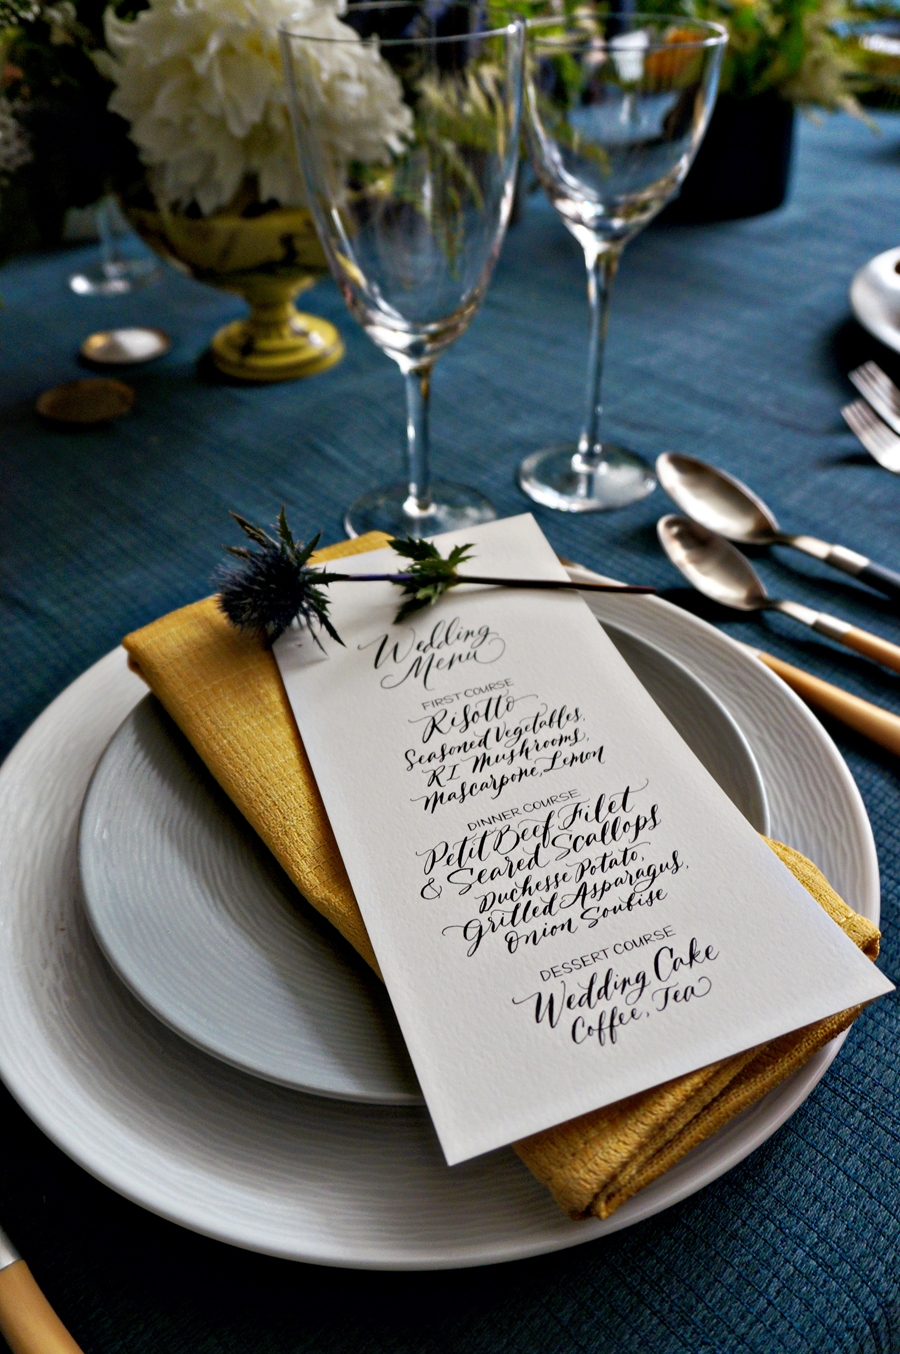 Wedding
Menu
FIRST COURSE
Risotto
Seasoned Vegetables,
RI Mushrooms,
Mascarpone, Lemon
DINNER COURSE
Petit Beef Filet
& Seared Scallops
Duchesse Potato,
Grilled Asparagus,
Onion Soubise
DESSERT COURSE
Wedding Cake
Coffee, Tea